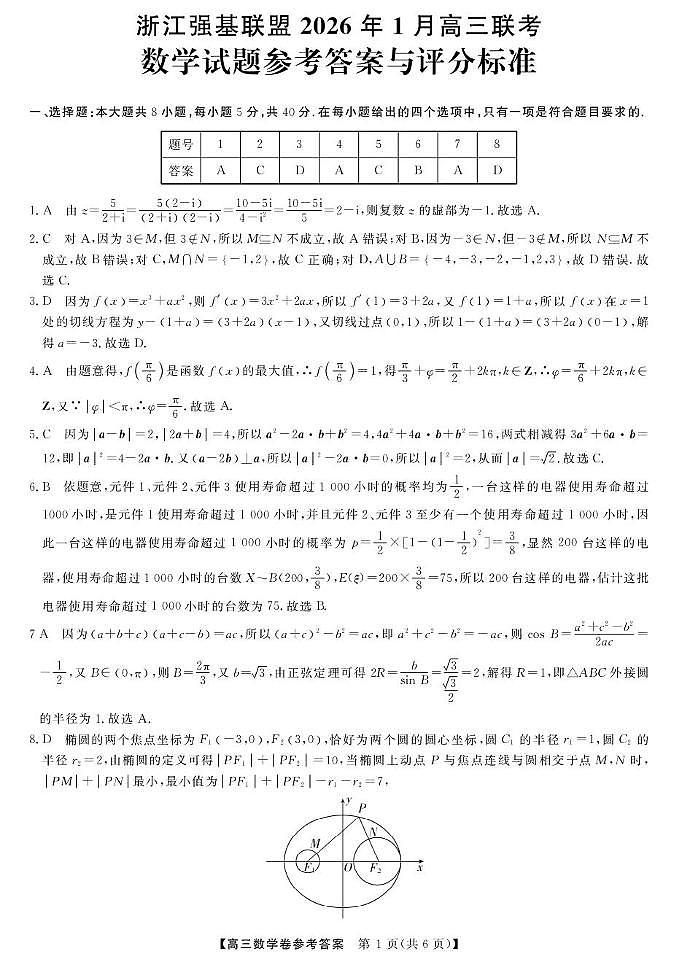 浙江强基联盟 2026 年 1 月高三联考
数学试题参考答案与评分标准
一、选择题:本大题共 8 小题,每小题 5 分,共 40 分.在每小题给出的四个选项中,只有一项是符合题目要求的.
题号 1 2 3 4 5 6 7 8
答案 A C D A C B A D
1. A 由 z=5/(2+i)=5(2-i)/((2+i)(2-i))=(10-5i)/(4-i²)=(10-5i)/5=2-i,则复数 z 的虚部为-1.故选 A.
2. C 对 A,因为 3∈M,但 3∉N,所以 M⊆N 不成立,故 A 错误;对 B,因为-3∈N,但-3∉M,所以 N⊆M 不
成立,故 B 错误;对 C,M∩N={-1,2},故 C 正确;对 D,A∪B={-4,-3,-2,-1,2,3},故 D 错误.故
选 C.
3. D 因为 f(x)=x³+ax²,则 f′(x)=3x²+2ax,所以 f′(1)=3+2a,又 f(1)=1+a,所以 f(x)在 x=1
处的切线方程为 y-(1+a)=(3+2a)(x-1),又切线过点(0,1),所以 1-(1+a)=(3+2a)(0-1),解
得 a=-3.故选 D.
4. A 由题意得,f(π/6)是函数 f(x)的最大值,∴f(π/6)=1,得π/3+φ=π/2+2kπ,k∈Z,∴φ=π/6+2kπ,k∈
Z,又∵|φ|<π,∴φ=π/6.故选 A.
5. C 因为|a-b|=2,|2a+b|=4,所以 a²-2a·b+b²=4,4a²+4a·b+b²=16,两式相减得 3a²+6a·b=
12,即|a|²=4-2a·b.又(a-2b)⊥a,所以|a|²-2a·b=0,所以|a|²=2,从而|a|=√2.故选 C.
6. B 依题意,元件 1、元件 2、元件 3 使用寿命超过 1 000 小时的概率均为1/2,一台这样的电器使用寿命超过
1000 小时,是元件 1 使用寿命超过 1 000 小时,并且元件 2、元件 3 至少有一个使用寿命超过 1 000 小时,因
此一台这样的电器使用寿命超过 1 000 小时的概率为 p=1/2×[1-(1-1/2)²]=3/8,显然 200 台这样的电
器,使用寿命超过 1 000 小时的台数 X~B(200,3/8),E(ξ)=200×3/8=75,所以 200 台这样的电器,估计这批
电器使用寿命超过 1 000 小时的台数为 75.故选 B.
7 A 因为(a+b+c)(a+c-b)=ac,所以(a+c)²-b²=ac,即 a²+c²-b²=-ac,则 cos B=(a²+c²-b²)/2ac=
-1/2,又 B∈(0,π),则 B=2π/3,又 b=√3,由正弦定理可得 2R=b/sin B=√3/(√3/2)=2,解得 R=1,即△ABC 外接圆
的半径为 1.故选 A.
8. D 椭圆的两个焦点坐标为 F₁(-3,0),F₂(3,0),恰好为两个圆的圆心坐标,圆 C₁ 的半径 r₁=1,圆 C₂ 的
半径 r₂=2,由椭圆的定义可得|PF₁|+|PF₂|=10,当椭圆上动点 P 与焦点连线与圆相交于点 M,N 时,
|PM|+|PN|最小,最小值为|PF₁|+|PF₂|-r₁-r₂=7,
y
P
N
M
F₁ O F₂ x
【高三数学卷参考答案 第 1 页(共 6 页)】